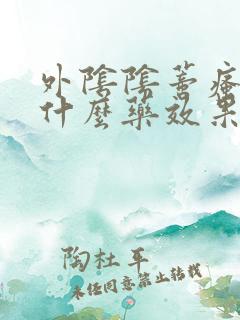 外陰陰蒂瘙
什麼藥效果
陶杜平
未經同意禁止轉載